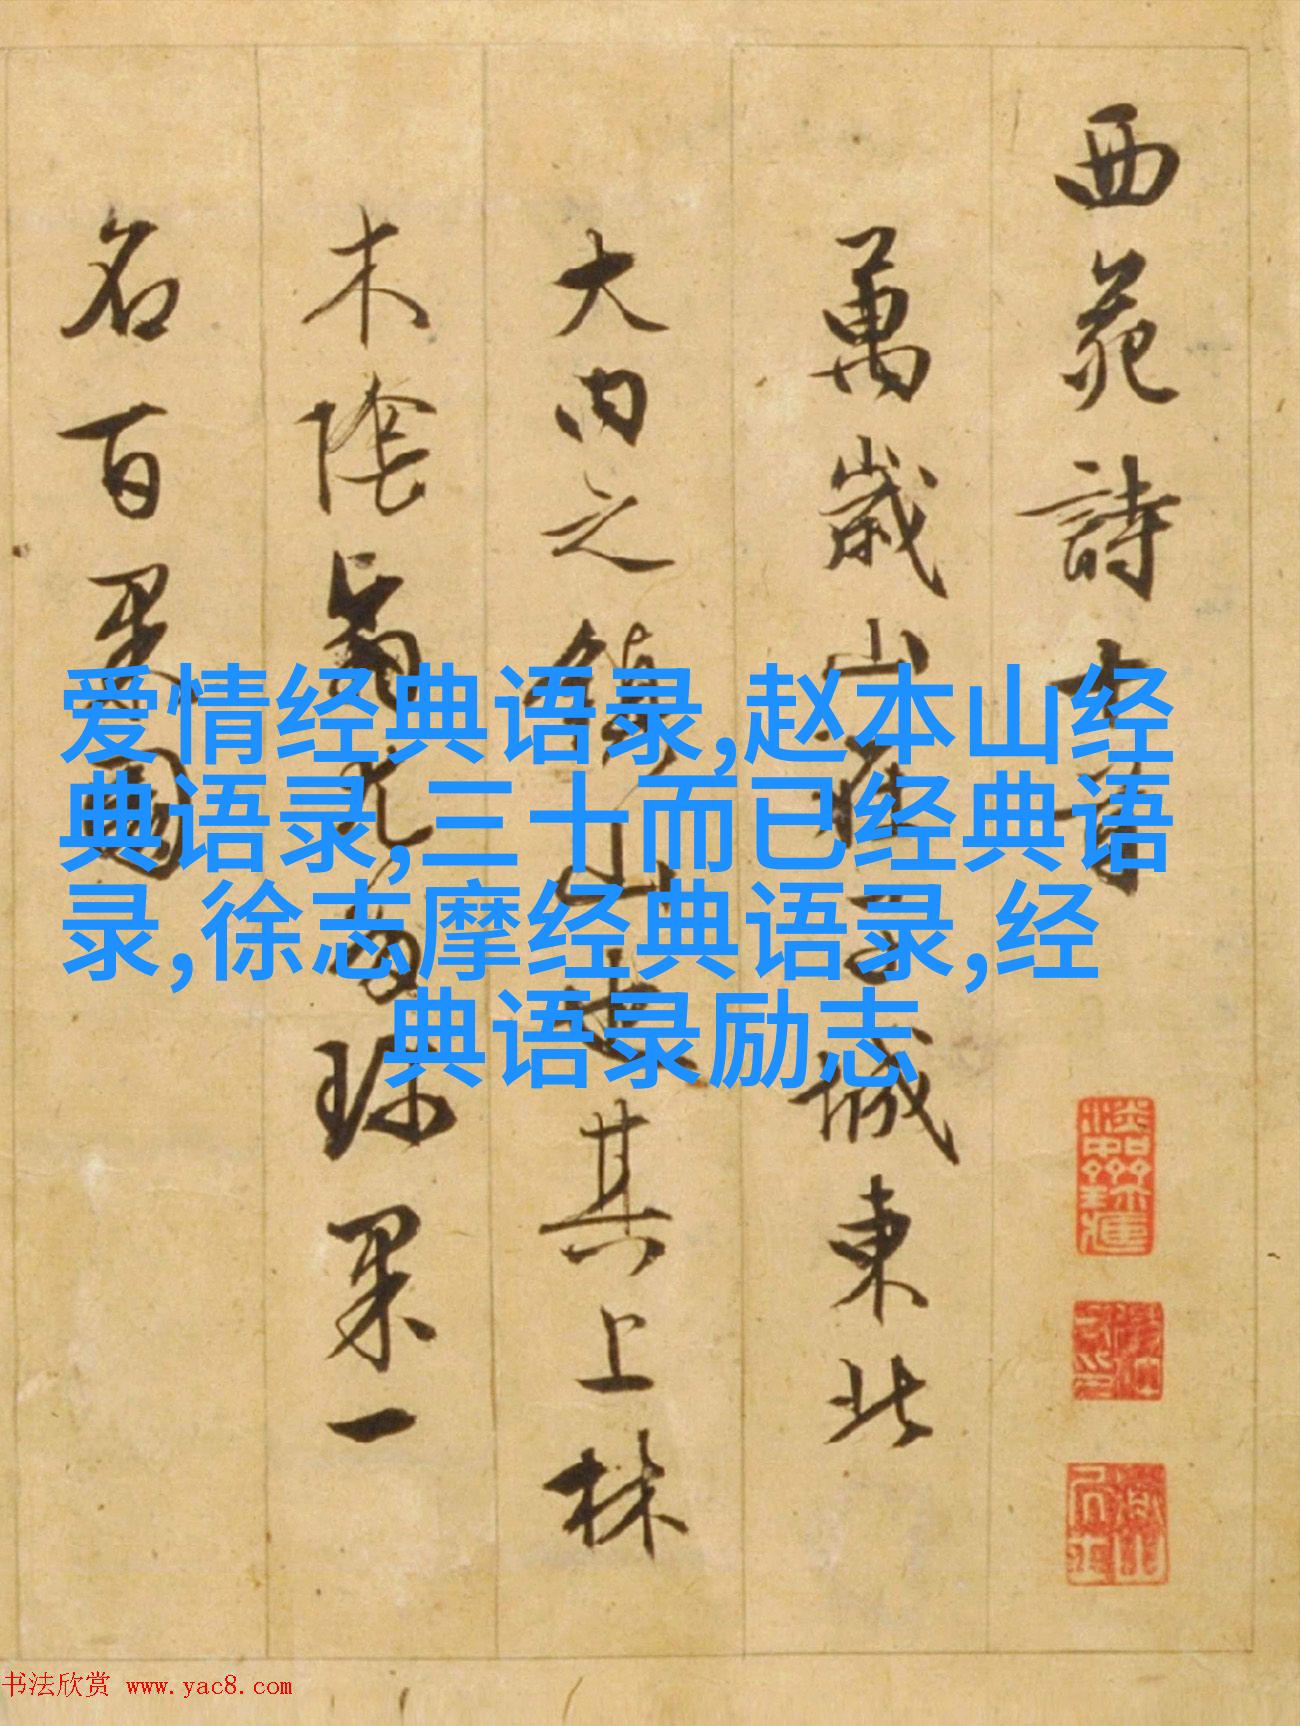 西苑詩十首
萬歲山在子城東北
大內之鎮山也其上林
木陰翳尤多珍果一
名百果園
爱情经典语录,赵本山经
典语录,三十而已经典语
录,徐志摩经典语录,经
典语录励志
书法欣赏 www.yac8.com